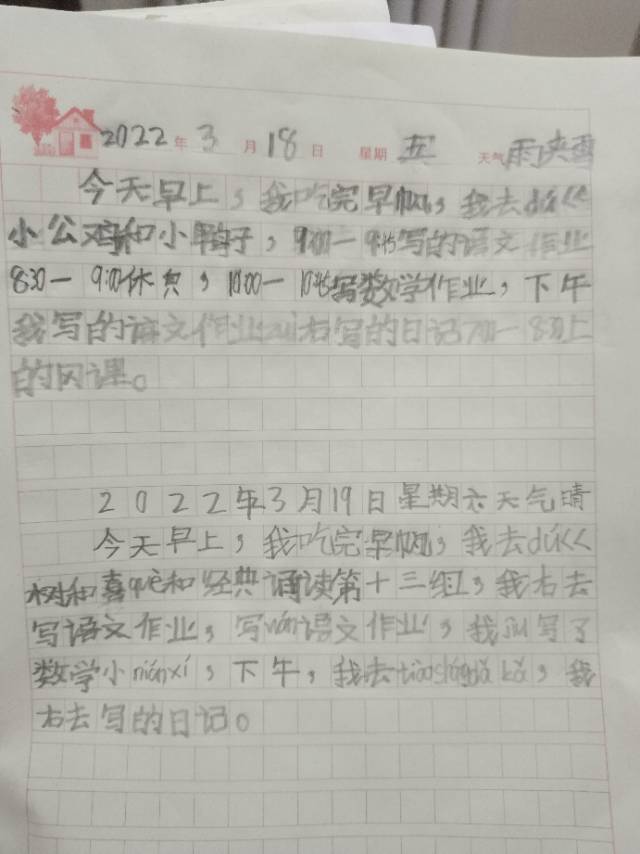 2022年3月18日 星期五 天气雨夹雪
今天早上，我吃完早饭，我去dú《
小公鸡和小鸭子，9:00—9:45写的语文作业
8:30—9:00休息，10:00—10:45写数学作业，下午
我写的语文作业 右写的日记7:00—8:00上
的网课。
2022年3月19日星期六天气晴
今天早上，我吃完早饭，我去dú《
树和喜què和经典诵读第十三组，我右去
写语文作业，写wán语文作业，我jiu写了
数学小niánxí，下午，我去tiàoshéngdǎkǎ，我
右去写的日记。